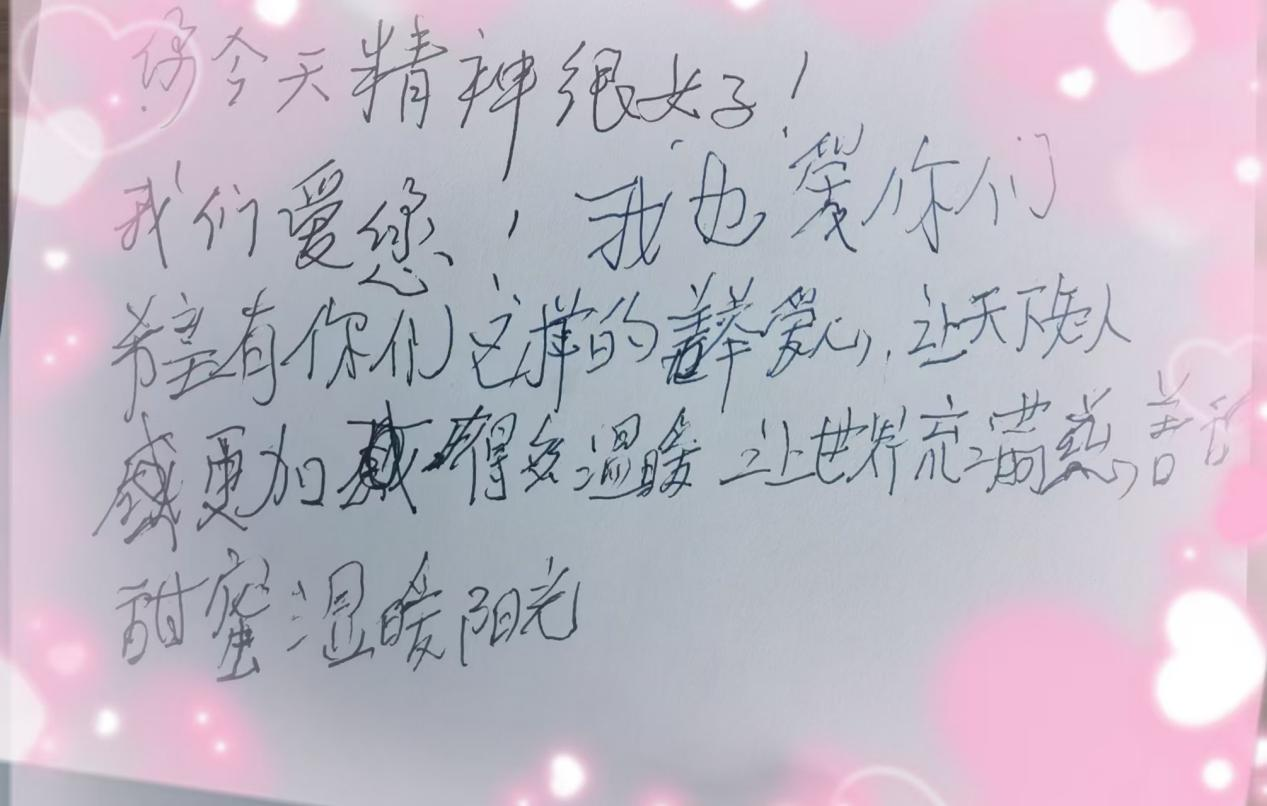 你今天精神很好！
我们爱您，我也爱你们
希望有你们这样的善举爱心，让天下老人
感更加 得多温暖 让世界充满慈善
甜蜜温暖阳光